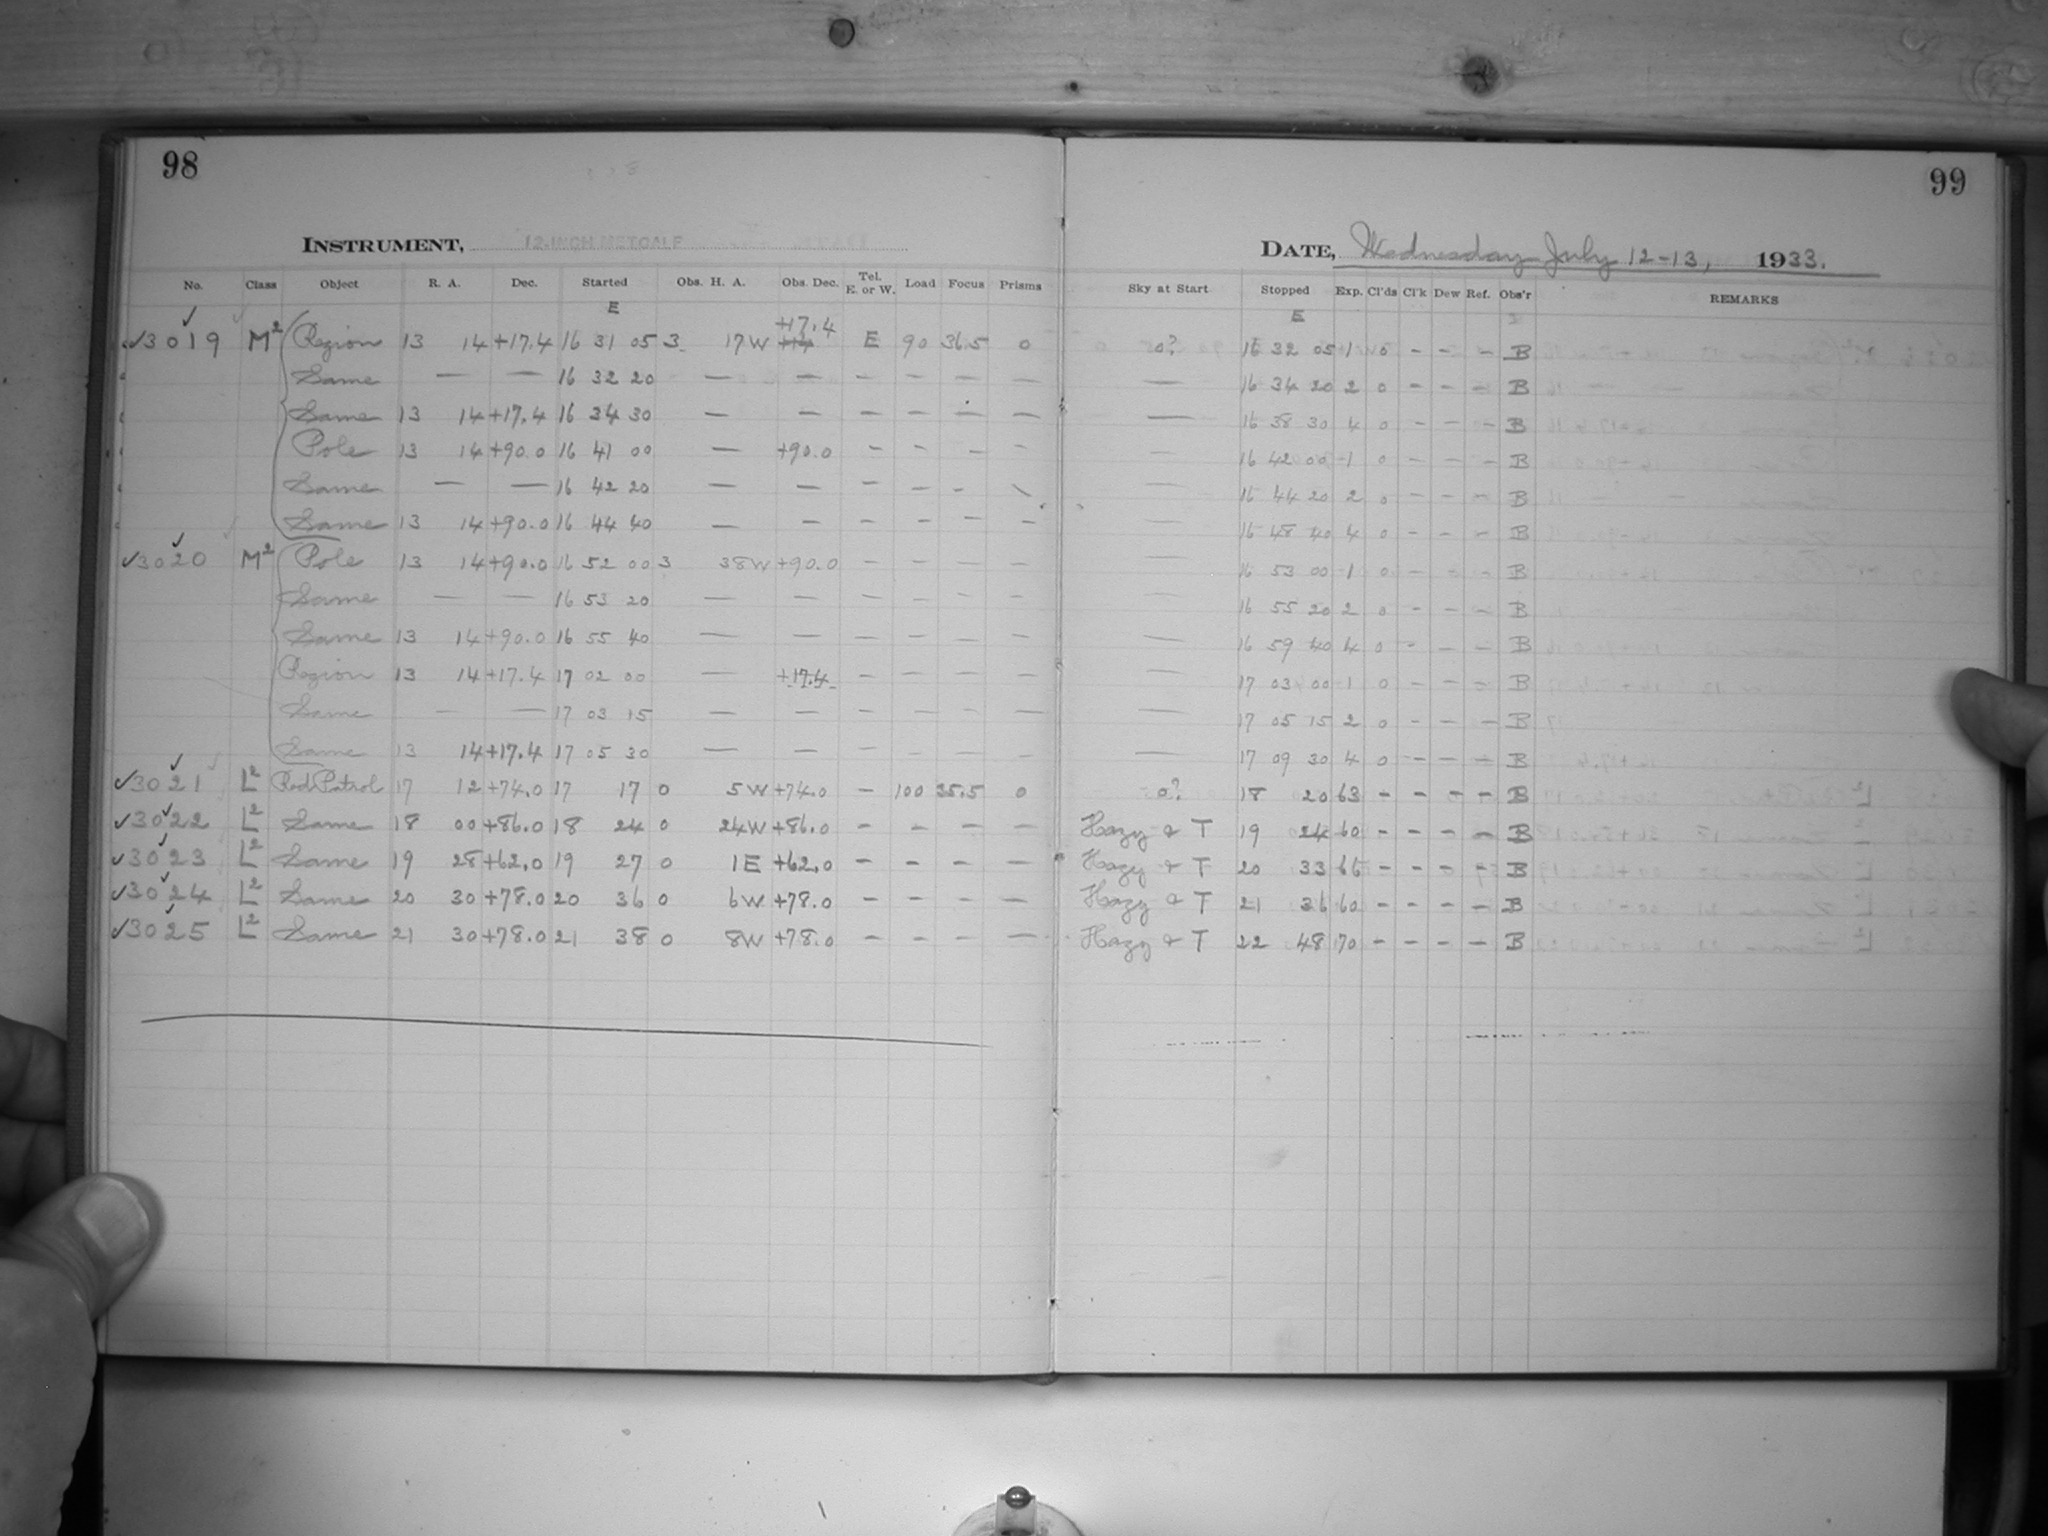 98
99
INSTRUMENT, 12-INCH METCALF
DATE, Wednesday July 12-13, 1933.
No. Class Object R. A. Dec. Started Obs. H. A. Obs. Dec. Tel. E. or W. Load Focus Prisms Sky at Start Stopped Exp. Cl'ds Cl'k Dew Ref. Obs'r REMARKS
E E
+17.4
✓3019 M² Region 13 14 +17.4 16 31 05 3 17W +14 E 90 36.5 0 0? 16 32 05 1 0 - - - B
Same — — 16 32 20 — — - - - — — 16 34 20 2 0 - - - B
Same 13 14 +17.4 16 34 30 — — - - - — — 16 38 30 4 0 - - - B
Pole 13 14 +90.0 16 41 00 — +90.0 - - - - — 16 42 00 1 0 - - - B
Same — — 16 42 20 — — - - - - — 16 44 20 2 0 - - - B
Same 13 14 +90.0 16 44 40 — — - - - - — 16 48 40 4 0 - - - B
✓3020 M² Pole 13 14 +90.0 16 52 00 3 38W +90.0 - - - - — 16 53 00 1 0 - - - B
Same — — 16 53 20 — — - - - - — 16 55 20 2 0 - - - B
Same 13 14 +90.0 16 55 40 — — - - - - — 16 59 40 4 0 - - - B
Region 13 14 +17.4 17 02 00 — +17.4 - - - - — 17 03 00 1 0 - - - B
Same — — 17 03 15 — — - - - — — 17 05 15 2 0 - - - B
Same 13 14 +17.4 17 05 30 — — - - - - — 17 09 30 4 0 - - - B
✓3021 L² Red Patrol 17 12 +74.0 17 17 0 5W +74.0 - 100 35.5 0 0? 18 20 63 - - - - B
✓3022 L² Same 18 00 +86.0 18 24 0 24W +86.0 - - - - Hazy & T 19 24 60 - - - - B
✓3023 L² Same 19 28 +62.0 19 27 0 1E +62.0 - - - - Hazy & T 20 33 66 - - - - B
✓3024 L² Same 20 30 +78.0 20 36 0 6W +78.0 - - - - Hazy & T 21 36 60 - - - - B
✓3025 L² Same 21 30 +78.0 21 38 0 8W +78.0 - - - - Hazy & T 22 48 70 - - - - B